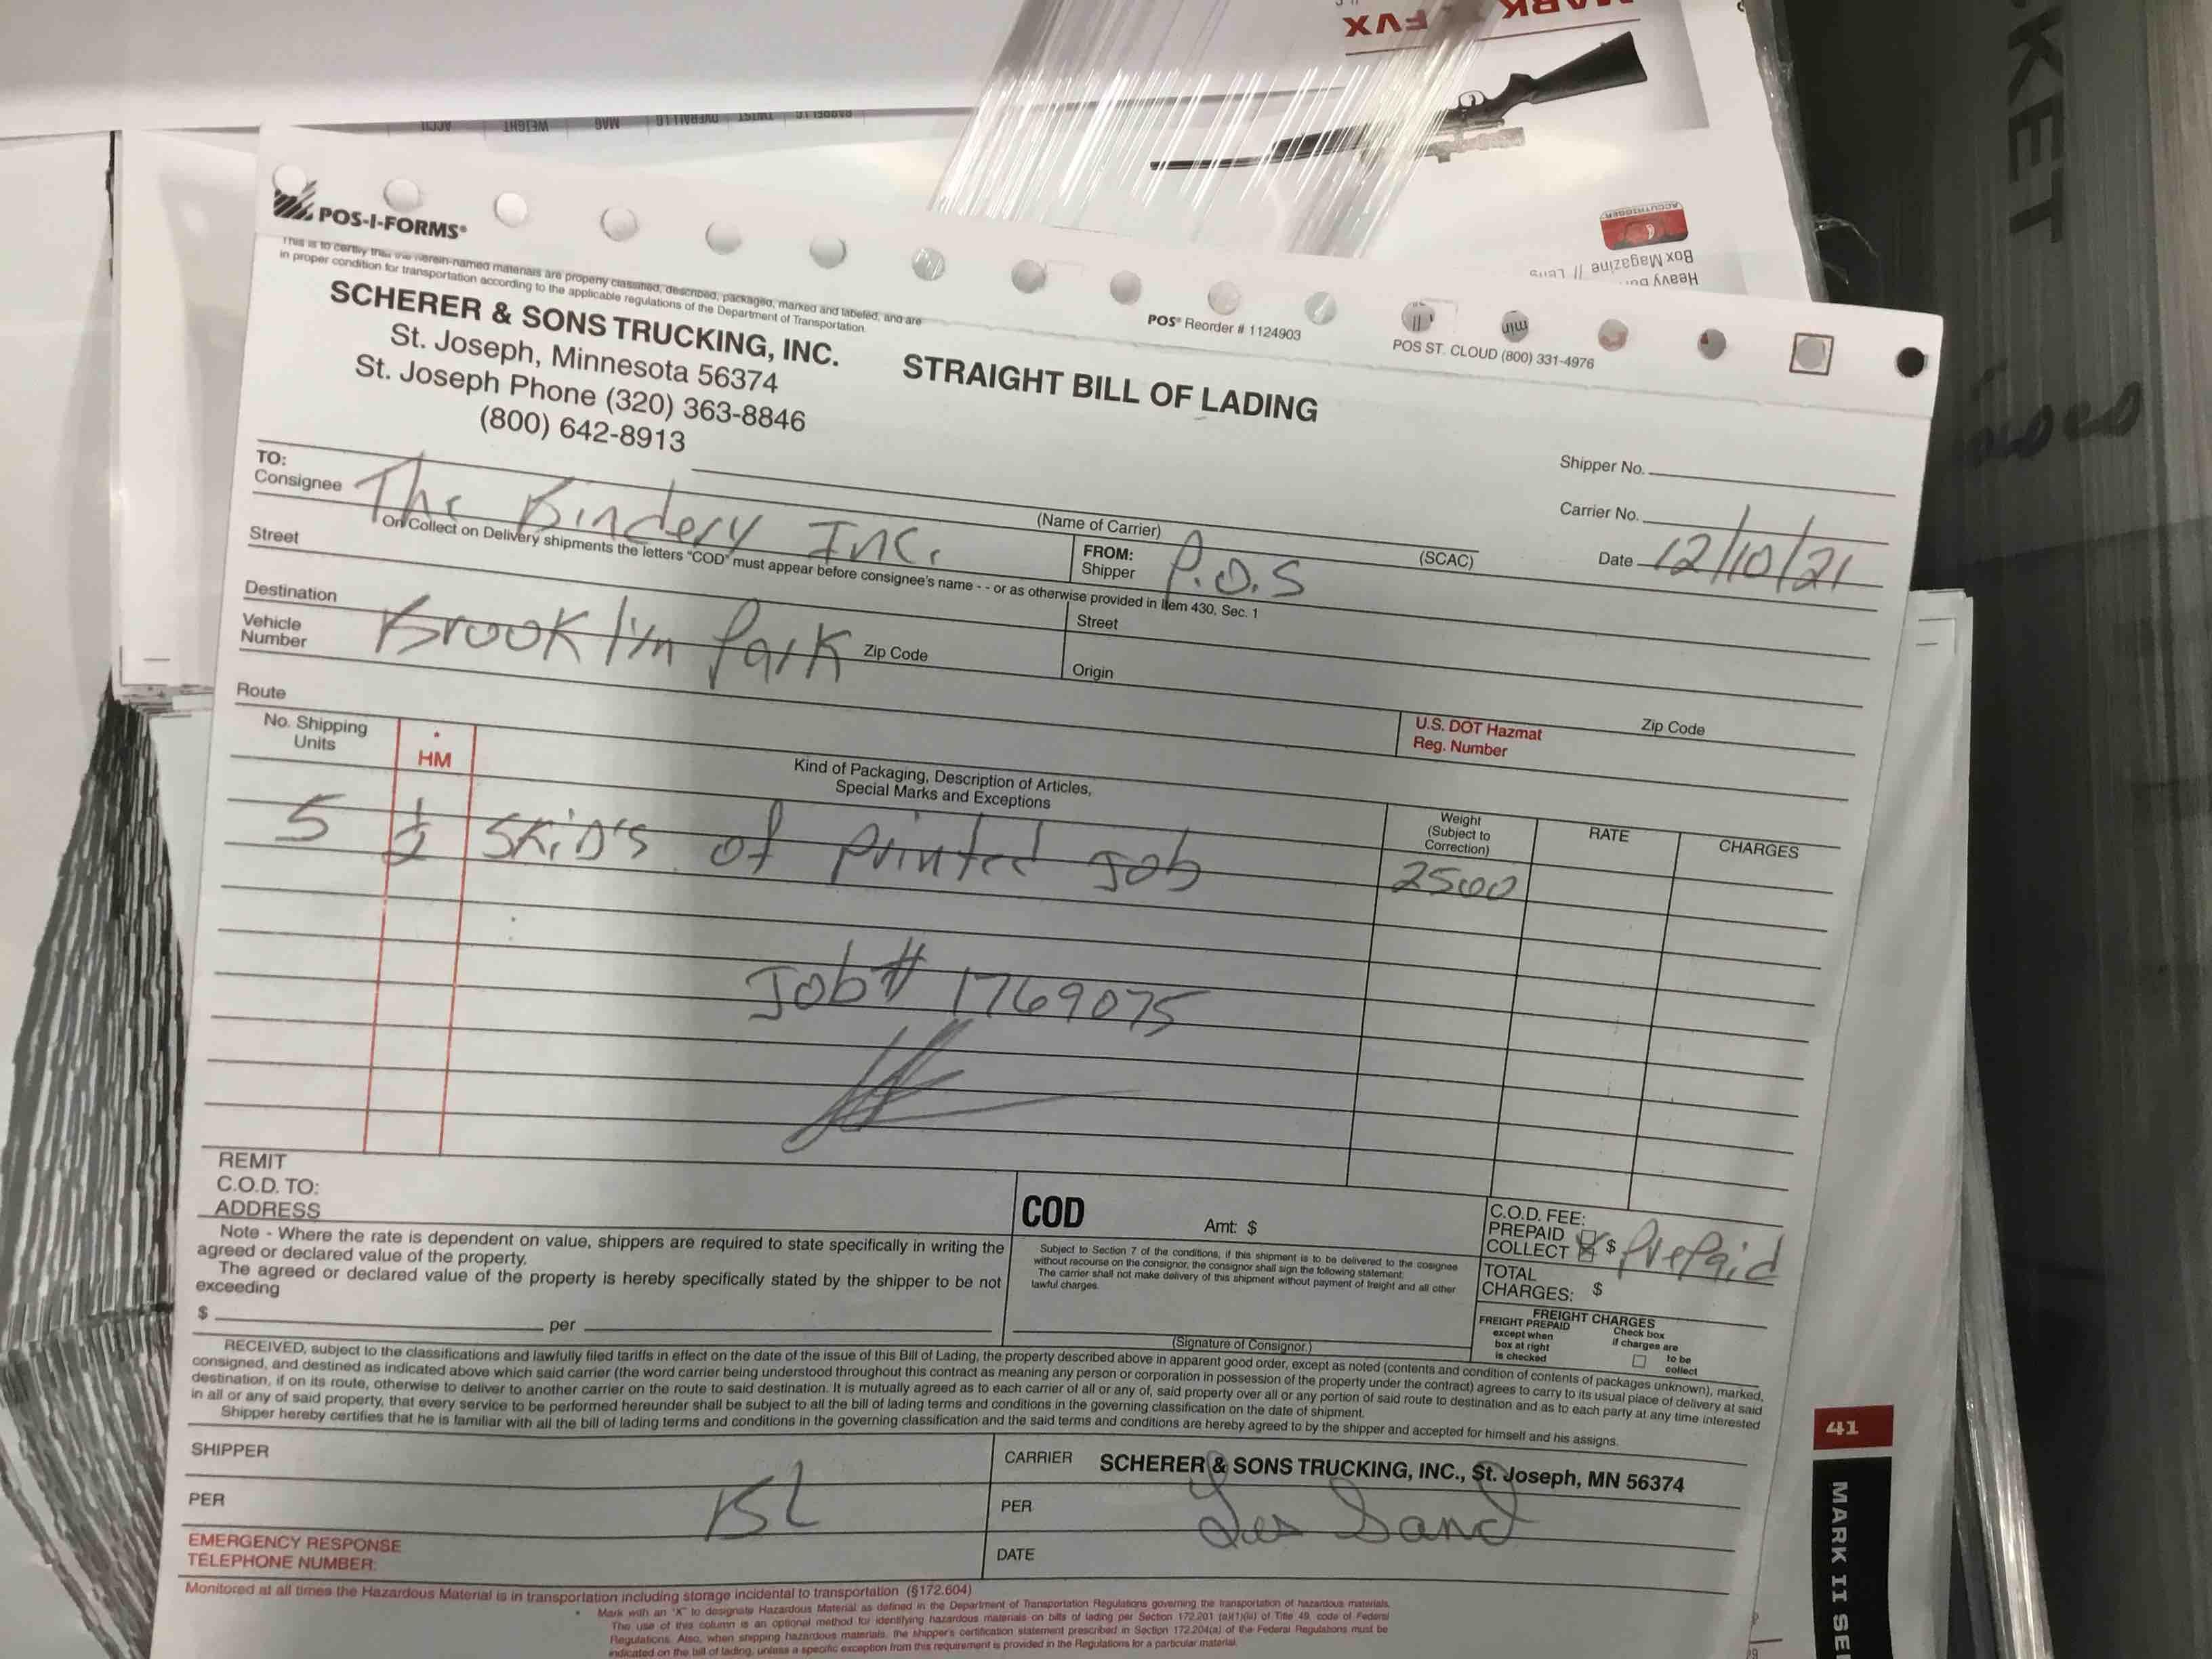 MARK FVX
ACCUTRIGGER
Box Magazine //
Heavy
BARREL LG TWIST OVERALL LG MAG WEIGHT
POS-I-FORMS®
POS® Reorder # 1124903
POS ST. CLOUD (800) 331-4976
This is to certify that the herein-named materials are properly classified, described, packaged, marked and labeled, and are
in proper condition for transportation according to the applicable regulations of the Department of Transportation.
SCHERER & SONS TRUCKING, INC.
St. Joseph, Minnesota 56374
St. Joseph Phone (320) 363-8846
(800) 642-8913
STRAIGHT BILL OF LADING
Shipper No.
Carrier No.
Date 12/10/21
(Name of Carrier) (SCAC)
TO:
Consignee The Bindery Inc.
On Collect on Delivery shipments the letters "COD" must appear before consignee's name - - or as otherwise provided in Item 430, Sec. 1
FROM:
Shipper P.O.S
Street
Street
Destination Brooklyn Park Zip Code
Origin Zip Code
Vehicle
Number
Route
U.S. DOT Hazmat
Reg. Number
No. Shipping
Units
*
HM
Kind of Packaging, Description of Articles,
Special Marks and Exceptions
Weight
(Subject to
Correction)
RATE
CHARGES
5 1/2 SKiD's of printed Job 2500
Job# 1769075
REMIT
C.O.D. TO:
ADDRESS
COD Amt: $
C.O.D. FEE:
PREPAID
COLLECT $ Prepaid
Note - Where the rate is dependent on value, shippers are required to state specifically in writing the
agreed or declared value of the property.
The agreed or declared value of the property is hereby specifically stated by the shipper to be not
exceeding
$ per
Subject to Section 7 of the conditions, if this shipment is to be delivered to the cosignee
without recourse on the consignor, the consignor shall sign the following statement:
The carrier shall not make delivery of this shipment without payment of freight and all other
lawful charges.
(Signature of Consignor.)
TOTAL
CHARGES: $
FREIGHT CHARGES
FREIGHT PREPAID
except when
box at right
is checked
Check box
if charges are
to be
collect
RECEIVED, subject to the classifications and lawfully filed tariffs in effect on the date of the issue of this Bill of Lading, the property described above in apparent good order, except as noted (contents and condition of contents of packages unknown), marked,
consigned, and destined as indicated above which said carrier (the word carrier being understood throughout this contract as meaning any person or corporation in possession of the property under the contract) agrees to carry to its usual place of delivery at said
destination, if on its route, otherwise to deliver to another carrier on the route to said destination. It is mutually agreed as to each carrier of all or any of, said property over all or any portion of said route to destination and as to each party at any time interested
in all or any of said property, that every service to be performed hereunder shall be subject to all the bill of lading terms and conditions in the governing classification on the date of shipment.
Shipper hereby certifies that he is familiar with all the bill of lading terms and conditions in the governing classification and the said terms and conditions are hereby agreed to by the shipper and accepted for himself and his assigns.
SHIPPER
CARRIER SCHERER & SONS TRUCKING, INC., St. Joseph, MN 56374
PER
PER Les Sand
EMERGENCY RESPONSE
TELEPHONE NUMBER:
DATE
Monitored at all times the Hazardous Material is in transportation including storage incidental to transportation (§172.604)
* Mark with an "X" to designate Hazardous Material as defined in the Department of Transportation Regulations governing the transportation of hazardous materials.
The use of this column is an optional method for identifying hazardous materials on bills of lading per Section 172.201 (a)(1)(iii) of Title 49, code of Federal
Regulations. Also, when shipping hazardous materials, the shipper's certification statement prescribed in Section 172.204(a) of the Federal Regulations must be
indicated on the bill of lading, unless a specific exception from this requirement is provided in the Regulations for a particular material.
41
MARK II SE